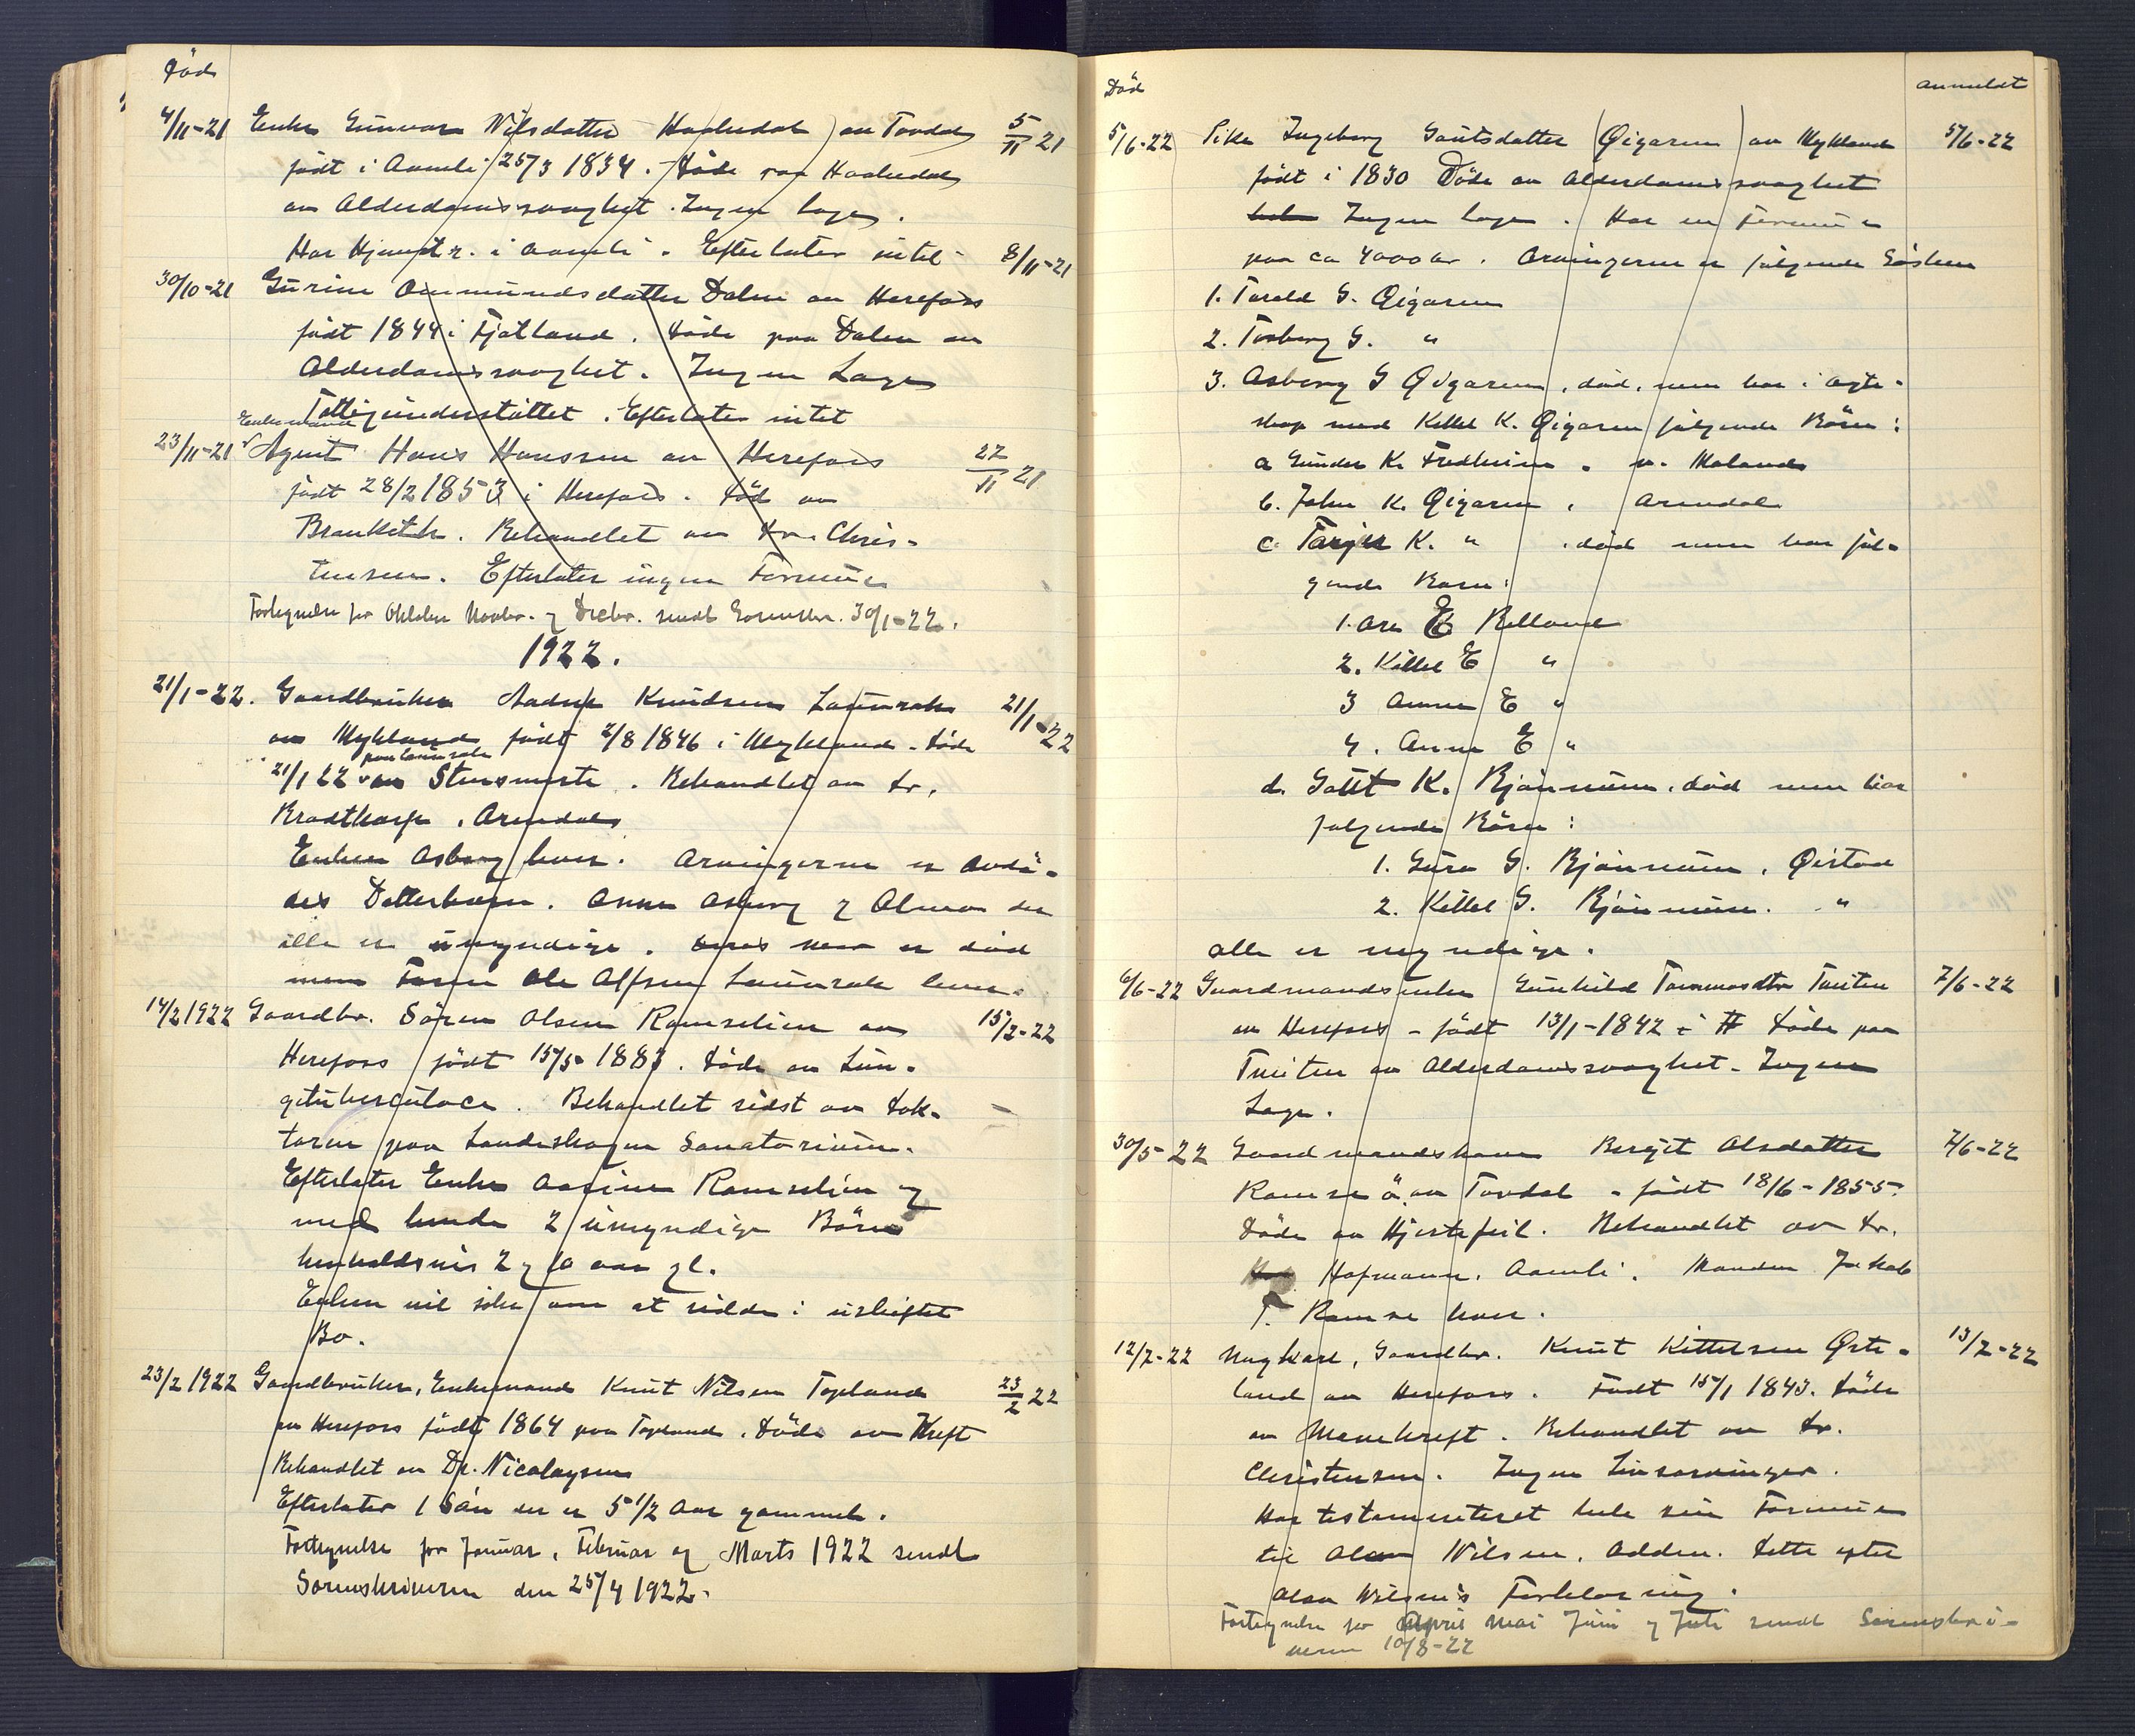 Död
4/11-21 Enke Gunvor Nilsdatter Haahedal av Tovdal 5/11 21
født i Aamli 25/3 1834. Döde paa Haahedal
av Alderdomssvaghet. Ingen læge.
Har Hjemstr. i Aamli. Efterlater intet 8/11-21
30/10-21 Gurine Aanmundsdatter Dalen av Herefoss
født 1844 i Fjotland. Döde paa Dalen av
Alderdomssvaghet. Ingen Læge
Fattigunderstöttet. Efterlater intet
Enkemand
23/11-21 Agent Hans Hanssen av Herefoss 27/11 21
født 28/2 1853 i Herefoss. Död av
Bronkith. Behandlet av Dr. Chris-
tensen. Efterlater ingen Formue
Fortegnelse for Oktober Novbr. og Decbr. sendt Sorenskr. 30/1-22.
1922.
21/1-22. Gaardbruker Knudsen Laurrak 21/1-22
av Mykland født 2/8 1846 i Mykland. Döde
paa Laurrak
21/1 22 av Stensmerte. Behandlet av Dr.
Arendal
Enken Asborg lever. Arvingerne er Avdö-
des Datterbørn. Anne Asborg og Alma der
alle er umyndige. Deres Mor er död
men Faren Ole Alfsen Laurrak lever.
14/2 1922 Gaardbr. Sören Olsen Ramselien av 15/2-22
Herefoss født 15/5-1883. Döde av Lun-
getuberculoce. Behandlet sidst av Dok-
toren paa Landeskogen Sanatorium.
Efterlater Enke Aasine Ramselien og
med hende 2 umyndige Börn
henholdsvis 2 og 10 aar gl.
Enken vil söke om at sidde i uskiftet
Bo.
23/2 1922 Gaardbruker, Enkemand Knut Nilsen Topland 23/2 22
av Herefoss født 1864 paa Topland. Döde av Kreft
Behandlet av Dr. Nicolaysen
Efterlater 1 Sön der er 5 1/2 Aar gammel.
Fortegnelse for Januar, Februar og Marts 1922 sendt
Sorenskriveren den 25/4 1922.
Död anmeldt
5/6-22 Pike Ingeborg Gautsdatter Øigaren av Mykland 5/6-22
født i 1830 Döde av Alderdomssvaghet
Ingen læge. Har en Formue
paa ca 4000 kr. Arvingerne er følgende Søsken
1. Tarald G. Øigaren
2. Torberg G. "
3. Asborg G Øigaren, död, men har i Egte-
skap med Kittel K. Øigaren følgende Börn:
a Gunder K. Fredheim. Ø. Moland
b. John K. Øigaren, Arendal
c. Tarjei K. " . död men har føl-
gende Barn:
1. Are E Relland
2. Kittel E "
3 Anne E "
4. Anna E "
d. Gaut K. Bjönnum. död men har
følgende Börn:
1. Guro G. Bjönnum, Øistad
2. Kittel G. Bjönnum. "
alle er myndige.
6/6-22 Gaardmandsenke Gunhild Tarmosdtr Tveiten 7/6-22
av Herefoss - født 13/1-1842 i H Döde paa
Tveiten av Alderdomssvaghet. Ingen
Læge.
30/5-22 Gaardmandskone Bergit Olsdatter 7/6-22
Ramse ö. av Tovdal - født 18/6-1855.
Döde av Hjertefeil. Behandlet av Dr.
Hofmann, Aamli. Manden Jakob
T. Ramse lever.
12/7-22 Ungkarl, Gaardbr. Knut Kittelsen Øste- 13/7-22
land av Herefoss. Født 15/1 1843. Döde
av Mavekreft. Behandlet av Dr.
Christensen. Ingen Livsarvinger.
Har testamenteret hele sin Formue
til Olav Nilsen, Adden. Dette efter
Olav Nilsens Forklaring.
Fortegnelse for April Mai Juni og Juli sendt Sorenskri-
veren 10/8-22